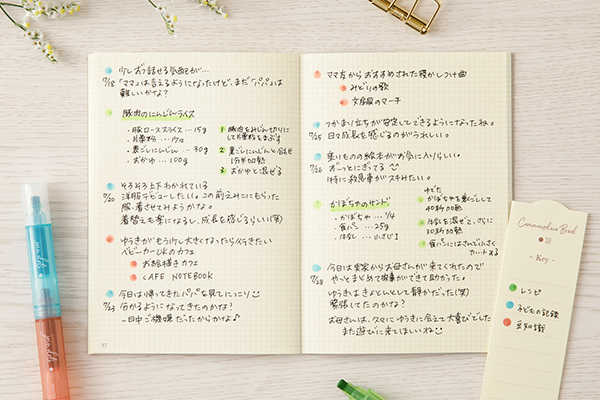 少しずつ話せる気配が…
7/18 「ママ」は言えるようになったけど、まだ「パパ」は
難しいかな？
豚肉のにんじんライス
・豚ローススライス…15g
・片栗粉…
・裏ごしにんじん…30g
・おかゆ…100g
1 豚肉をみじん切りにして片栗粉をまぶす
2 裏ごしにんじんと合せ
1分半加熱
3 おかゆと混ぜる
そろそろ上下わかれている
7/20 洋服デビューしたい。この前えみにもらった
服、着させてみようかな。
着替えも楽になるし、成長を感じるらしい(笑)
ゆうきがもう少し大きくなったら行きたい
ベビーカーOKのカフェ
お絵描きカフェ
CAFE NOTEBOOK
今日は帰ってきたパパを見てにっこり
7/23 分かるようになってきたのかな？
一日中ご機嫌だったからかな♪
87
ママ友からおすすめされた寝かしつけ曲
みどりの歌
文房具のマーチ
つかまり立ちが安定してできるようになったね。
7/25 日々成長を感じるのがうれしい。
乗りものの絵本がお気に入りらしい。
7/26 ずーっとにぎってる
特に救急車がスキみたい。
かぼちゃのサンド
・かぼちゃ…1/4
・食パン…25g
・牛乳…小さじ1
ゆでた
かぼちゃを裏ごしして
40秒加熱
牛乳を混ぜて、さらに
30秒加熱
食パンにはさんで小さく
カットする
今日は実家からお母さんが来てくれたので
7/28 やーっとまとめて家事ができて助かった♪
ゆうきはきょとんとして静かだった(笑)
緊張してたのかな？
お母さんは、久々にゆうきに会えて大喜びでした
また遊びに来てほしいね
Commonplace Book
- Key -
レシピ
子どもの記録
豆知識